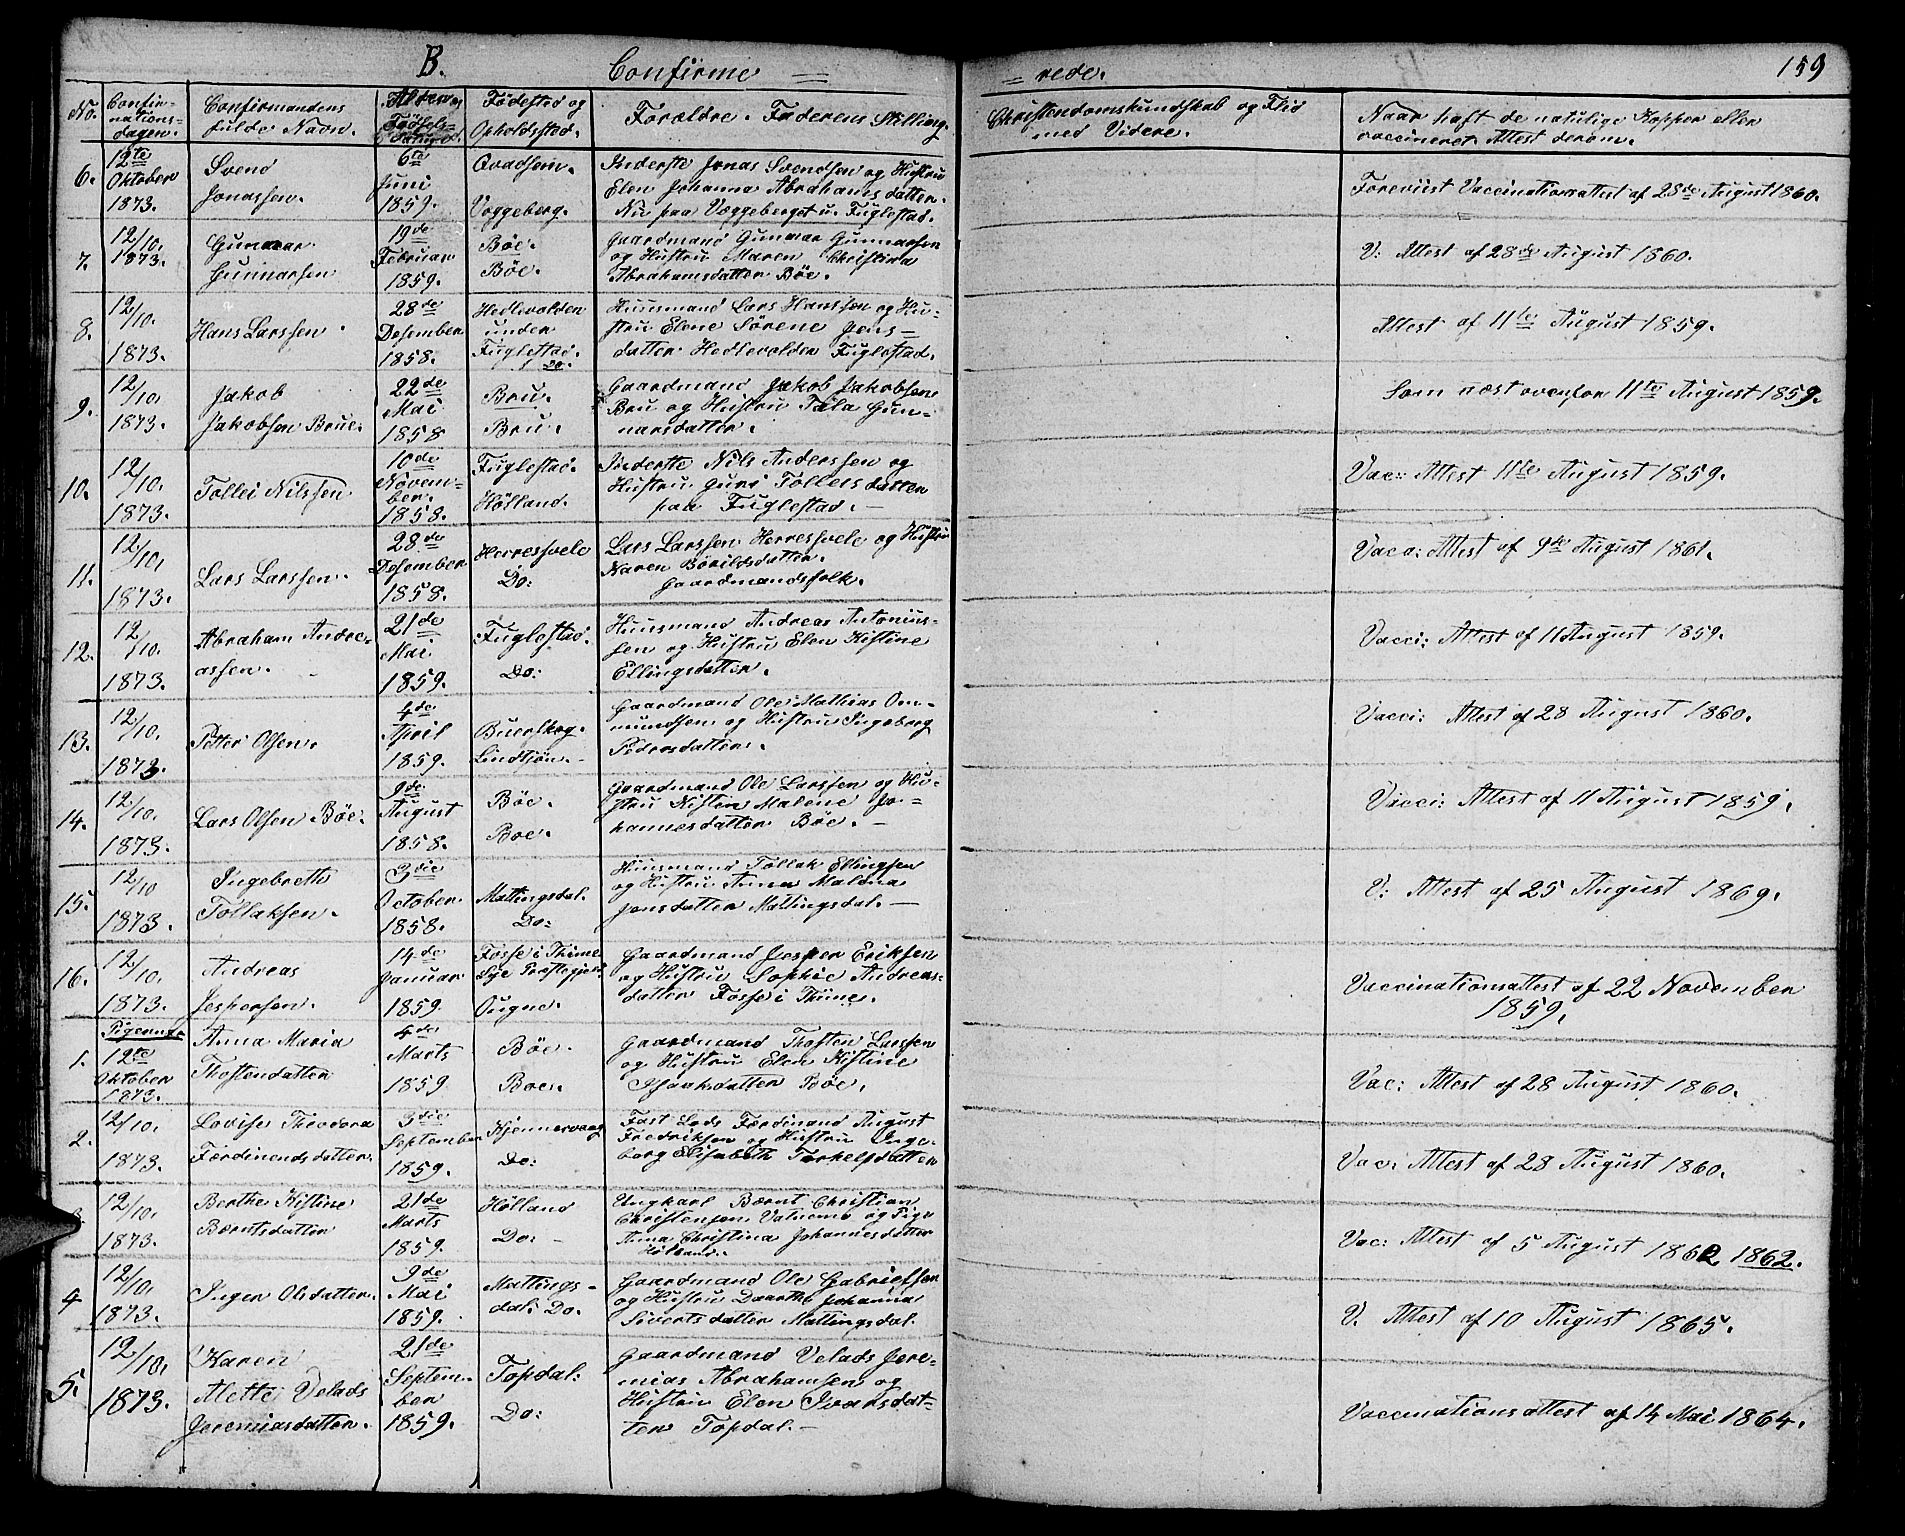 B. Confirme = = rede. 159
No. Confir-
nations-
dagen.
Confirmandens
fulde Navn.
Alder og
Fødsels-
Datum.
Fødested og
Opholdsstad.
Forældre. Faderens Stilling.
Christendomskundskab og Flid
med Videre.
Naar haft de natulige Kopper eller
vaccineret. Attest derom.
6.
12te
Oktober
1873.
Svend
Jonassen.
6te
Juni
1859.
Qvadsem.
Veggeberg.
Inderste Jonas Svendsen og Hustru
Elen Johanna Abrahamsdatter.
Nu paa Væggeberget u. Fuglestad.
Foreviist Vaccinationsattest af 28de August 1860.
7.
12/10.
1873.
Gunnar
Gunnarsen
19de
Februar
1859.
Böe.
Böe.
Gaardmand Gunnar Gunnarsen
og Hustru Maren Christina
Abrahamsdatter Böe.
V: Attest af 28de August 1860.
8.
12/10.
1873.
Hans Larssen.
28de
Desember
1858.
Hedlevolden
under
Fuglestad.
Do.
Huusmand Lars Hanssen og Hu-
stru Elene Sörene Jens-
datter Hedlevolden Fuglestad.
Attest af 11te August 1859.
9.
12/10.
1873.
Jakob
Jakobsen Brue.
22de
Mai
1858
Bru.
Bru.
Gaardmand Jakob Jakobsen
Bru og Hustru Tala Gun-
narsdatter.
Som næst ovenfor 11te August 1859.
10.
12/10.
1873.
Tollei Nilssen
10de
Novem-
ber.
1858.
Fuglestad.
Hölland.
Inderste Nils Anderssen og
Hustru Guri Tolleisdatter
paa Fuglestad. —
Vac: Attest 11te August 1859.
11.
12/10.
1873.
Lars Larssen.
28de
Desember
1858.
Herresvele
Do:
Lars Larssen Herresvele og Hustru
Karen Börildsdatter.
Gaardmandsfolk.
Vacc: Attest af 9de August 1861.
12.
12/10.
1873.
Abraham Andre-
assen.
21de
Mai
1859.
Fuglestad.
Do:
Huusmand Andreas Antonius-
sen og Hustru Elen Kistine
Ellingsdatter.
Vacci: Attest af 11 August 1859.
13.
12/10.
1873.
Petter Olsen.
4de
April
1859.
Buerskog.
Lindtjön.
Gaardmand Ole Mathias Om-
mundsen og Hustru Ingeborg
Pedersdatter.
Vacci: Attest af 28 August 1860.
14.
12/10.
1873.
Lars Olsen Böe.
9de
August
1858.
Böe.
Boe.
Gaardmand Ole Larssen og Hu-
stru Kistin Malene Jo-
hannesdatter Böe. —
Vacci: Attest af 11 August 1859.
15.
12/10
1873.
Ingebreth
Tollaksen.
3die
October.
1858.
Mattingsdal.
Do:
Huusmand Tollak Ellingsen
og Hustru Anna Malena
Jensdatter Mattingsdal. —
V: Attest af 25 August 1869.
16.
12/10.
1873.
Andreas
Jespersen.
14de
Januar
1859.
Fosse i Thime
Lye Præstegjeld
Ougne.
Gaardmand Jesper Eriksen
og Hustru Sophie Andreas-
datter Fosse i Thime.
Vaccinationsattest af 22 November
1859.
Pigerne.
1.
12te
Oktober
1873.
Anna Maria
Thostendatter
4de
Marts
1859
Böe.
Boe.
Gaardmand Thosten Larssen
og Hustru Elen Kistine
Isaaksdatter Böe.
Vac: Attest af 28 August 1860.
2.
12/10.
1873.
Lovise Theodora
Færdinendsdatter.
3die
September
1859.
Kjennervaag
Do:
Fast Lods Færdinand August
Fredriksen og Hustru Inge-
borg Elisabeth Torkelsdatter
Vac: Attest af 28 August 1860.
12/10.
1873.
Berthe Kistine
Bærntsdatter
21de
Marts
1859.
Hölland
Do:
Ungkarl Bærnt Christian
Christensen Vatnemo og Pige
Anna Christina Johannesdatter
Hölland.
Vac: Attest af 5 August 1862 1862.
4
12/10.
1873.
Inger Olsdatter.
9de
Mai
1859.
Mattings-
dal. Do.
Gaardmand Ole Gabrielsen
og Hustru Daarthe Johanna
Sivertsdatter Mattingsdal.
V. Attest af 10 August 1865.
5.
12/10.
1873.
Karen
Alette Velads
Jeremiasdatter.
21de
Septem-
ber
1859.
Topdal:
Do:
Gaardmand Velads Jere-
mias Abrahamsen og
Hustru Elen Ivarsdat-
ter Topdal. —
Vaccinationsattest af 14 Mai 1864.